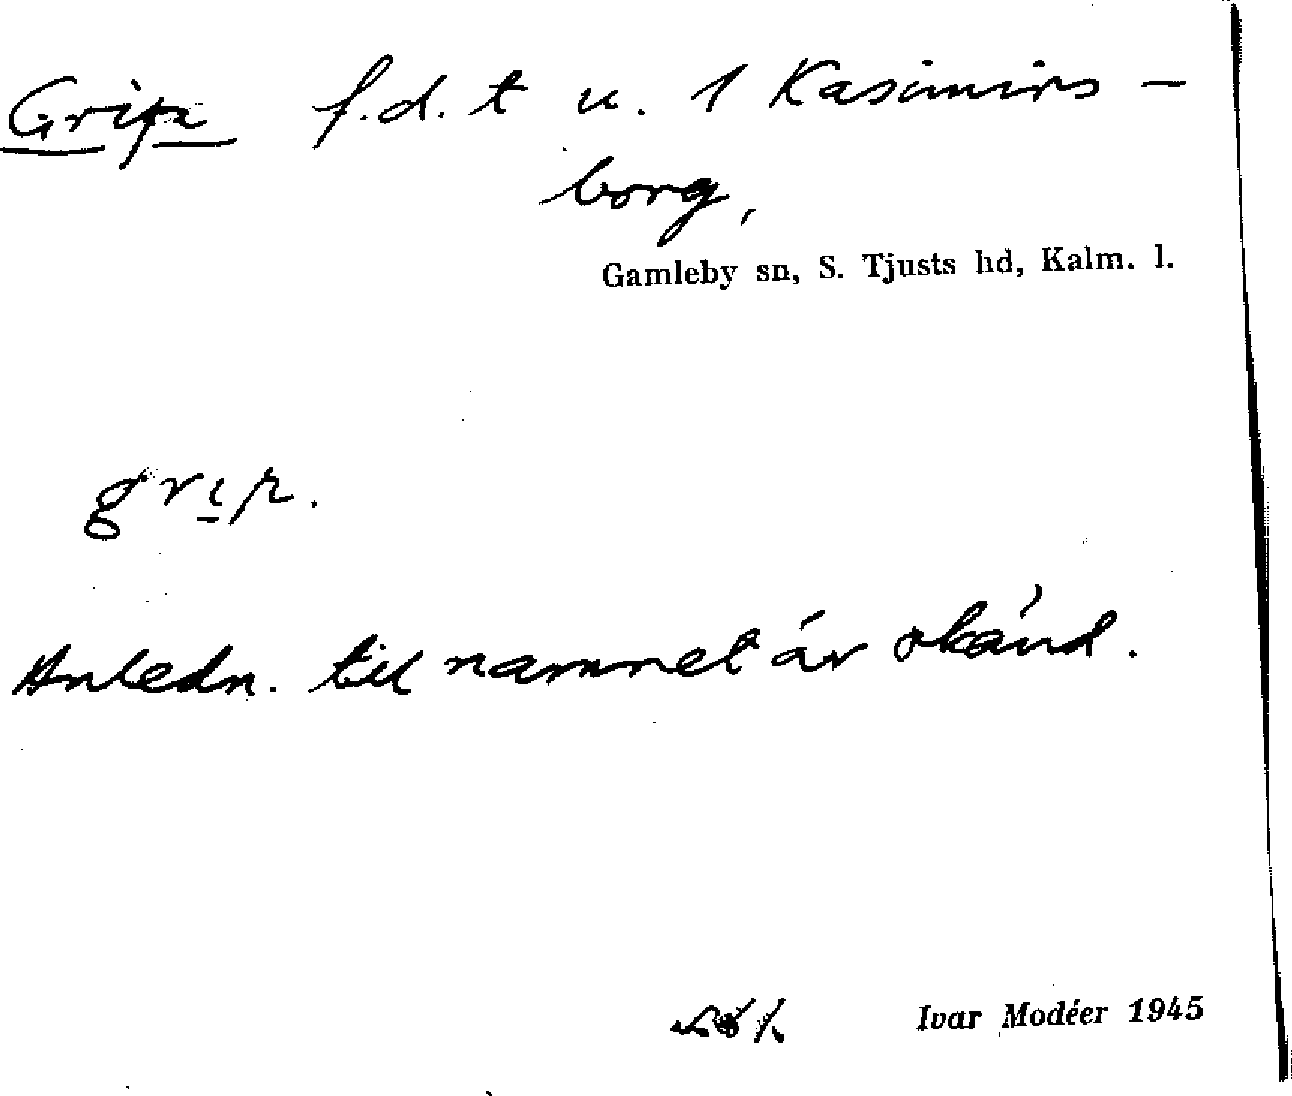 Grip f.d. t u. 1 Kasimirs-
borg,
Gamleby sn, S. Tjusts hd, Kalm. l.
grip.
Anledn. till namnet är okänd.
Ivar Modéer 1945